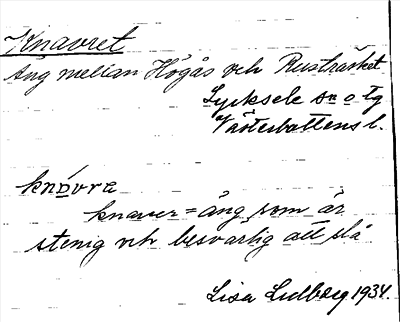 Knavret
Äng mellan Högås och Rusträsket
Lycksele sn o tg
Västerbottens l.
knávra
knaver = äng som är
stenig och besvärlig att slå
Lisa Lidberg 1934.